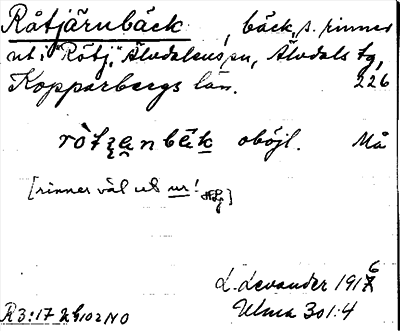 Råtjärnbäck, bäck, s. rinner
ut i "Rötj." Älvdalens sn, Älvdals tg,
Kopparbergs län. 226
ròtʒ̨a̠nbäk oböjl. Må
[rinner väl ut ur!]
L. Levander 1916
R3:17 Ulma 301:4